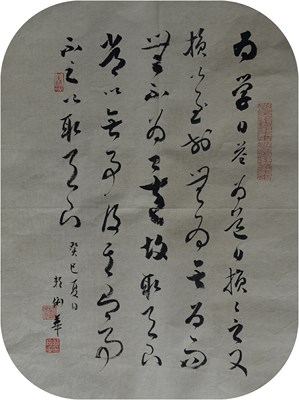 為學日益為道日損損之又
損以至於無為無為而
無不為矣故取天下
常以無事及其有事
不足以取天下
癸巳夏日
華